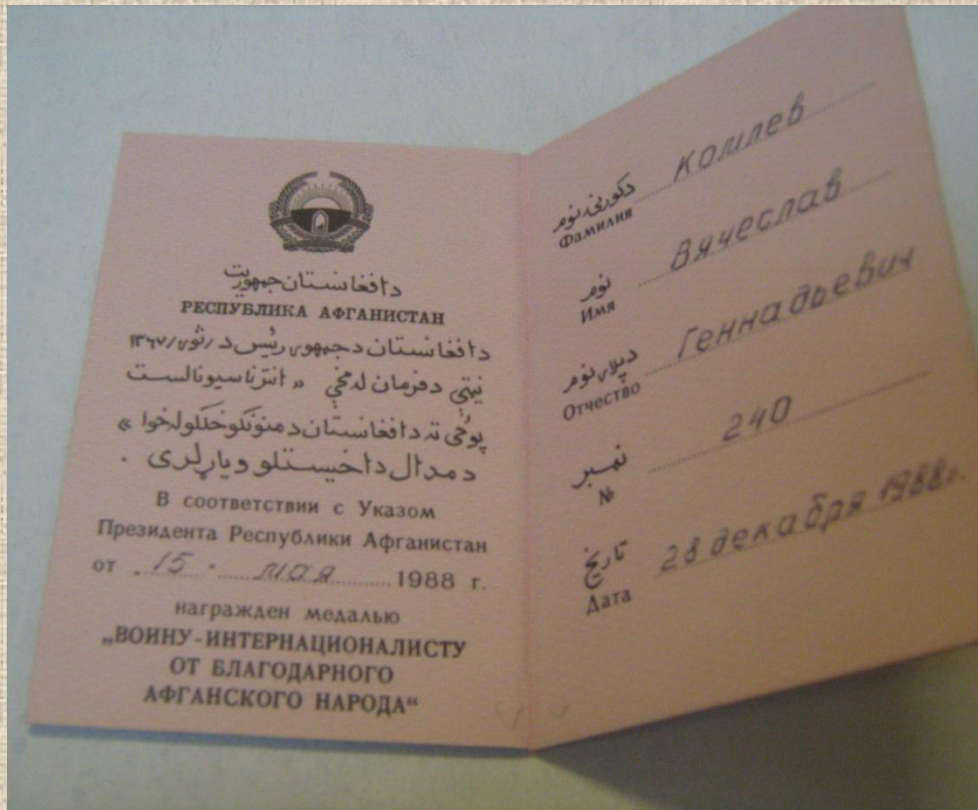 دافغانستان جمهوریت
РЕСПУБЛИКА АФГАНИСТАН
دافغانستان دجمهور رئیس د /ثور/۱۳۶۷
نیټې دفرمان له مخې «انترناسیونالست
پوځی ته دافغانستان دمنونکو خلکو له خوا»
دمدال داخیستلو ویاړ لری .
В соответствии с Указом
Президента Республики Афганистан
от 15 мая 1988 г.
награжден медалью
„ВОИНУ-ИНТЕРНАЦИОНАЛИСТУ
ОТ БЛАГОДАРНОГО
АФГАНСКОГО НАРОДА“
دکورنۍ نوم Комлев
Фамилия
نوم Вячеслав
Имя
دپلار نوم Геннадьевич
Отчество
نمبر 240
№
تاریخ 28 декабря 1988г.
Дата